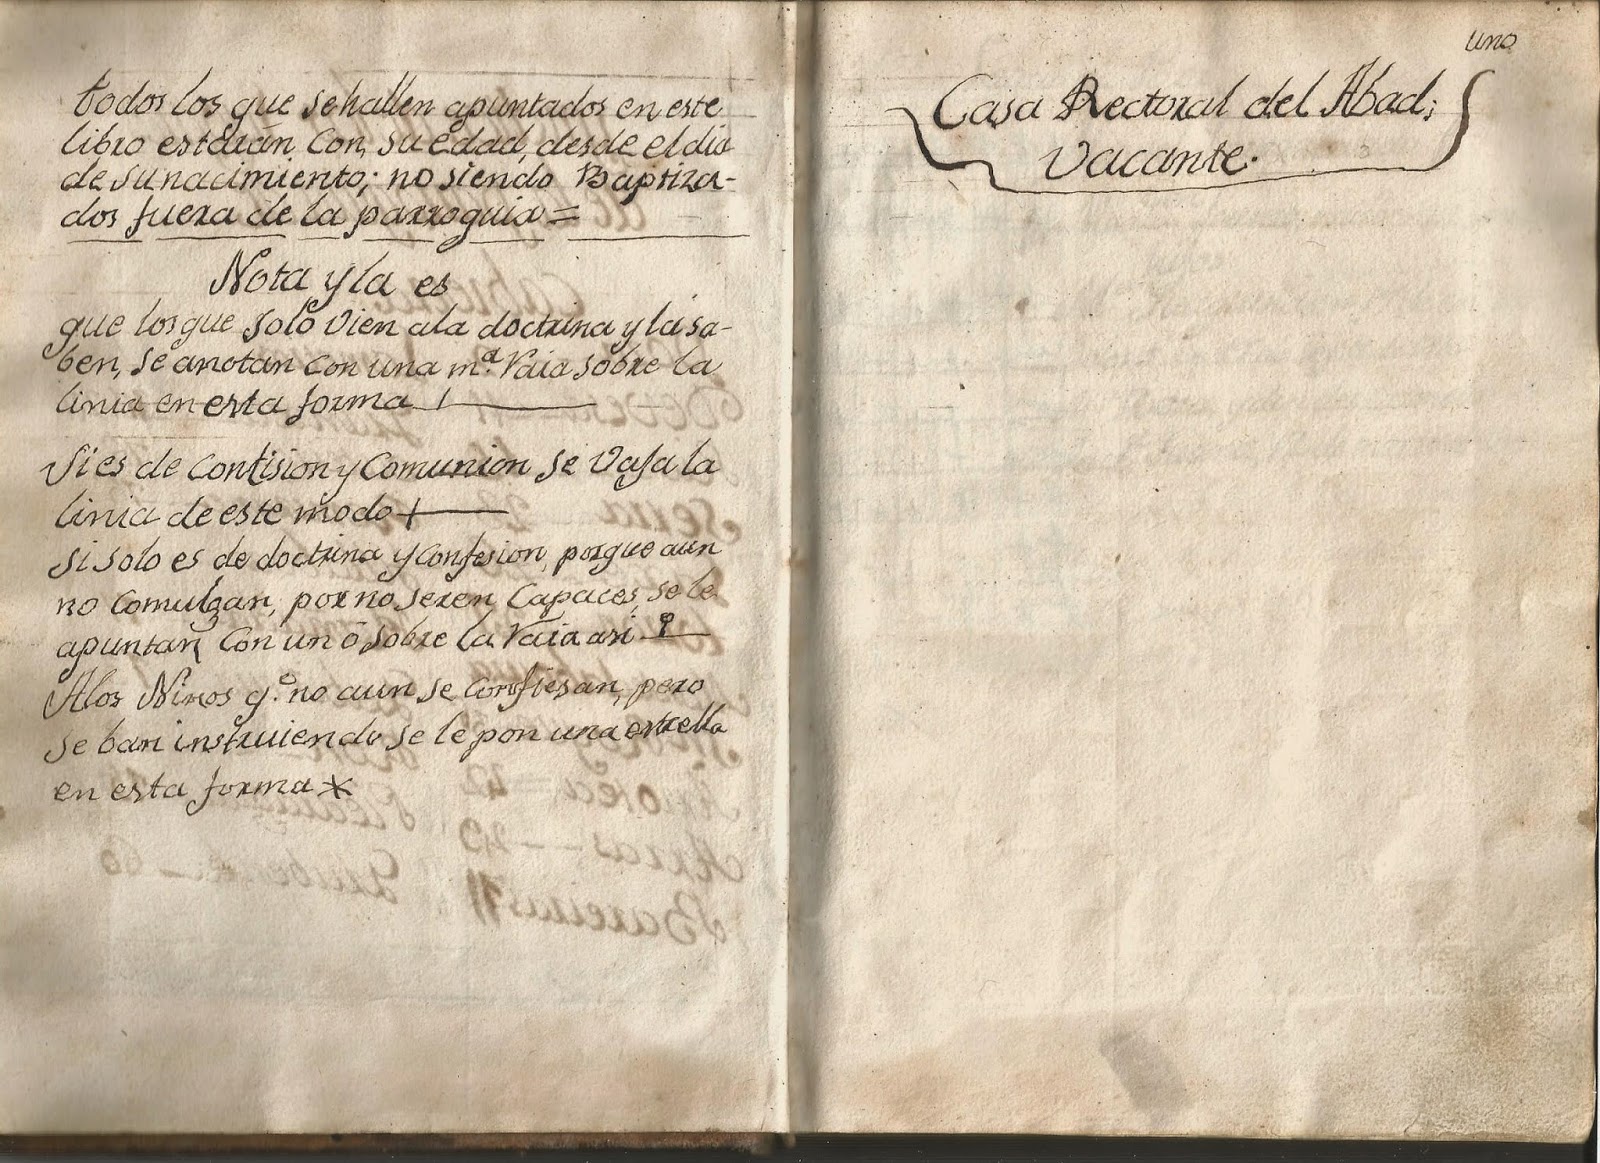 todos los que se hallen apuntados en este
libro estarán con su edad, desde el dia
de su nacimiento; no siendo Baptiza-
dos fuera de la parroquia =
Nota y la es
que los que solo vien a la doctrina y la sa-
ben, se anotan con una m.ª Raia sobre la
linia en esta forma
Si es de Confision y Comunion se Vaja la
linia de este modo +
Si solo es de doctrina y confesion, porque aun
no Comulgan, por no seren Capaces, se le
apuntan con un o sobre la Raia asi
A los Niños q.e no aun se confiesan, pero
se ban instruiendo se le pon una estrella
en esta forma *
uno
Casa Rectoral del Abad;
Vacante.